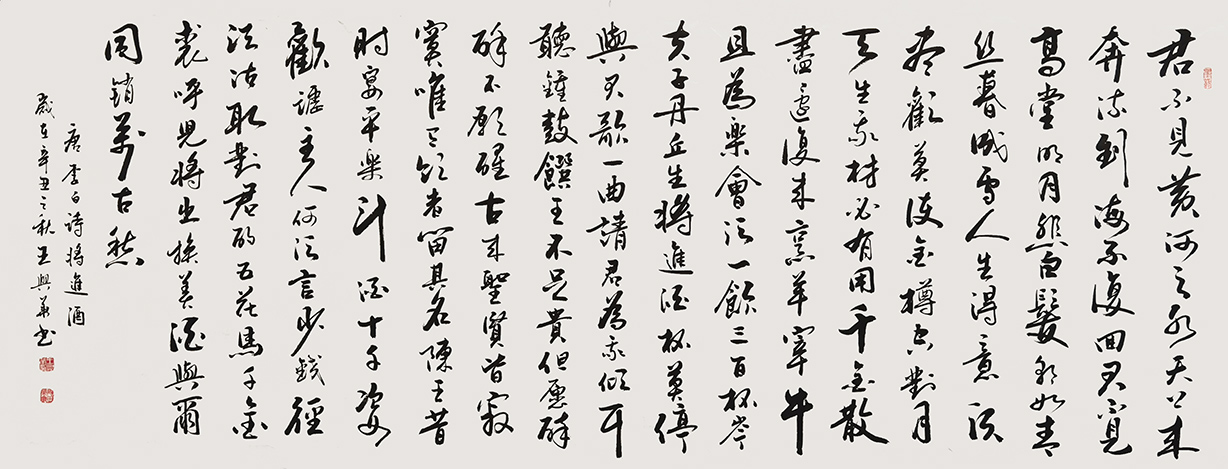 君不見黃河之水天上來
奔流到海不復回君不見
高堂明月悲白髮朝如青
丝暮成雪人生得意須
盡歡莫使金樽空對月
天生我材必有用千金散
盡還復來烹羊宰牛
且為樂會須一飲三百杯岑
夫子丹丘生將進酒杯莫停
與君歌一曲請君為我傾耳
聽鐘鼓饌玉不足貴但愿醉
醉不願醒古來聖賢皆寂
寞唯有飲者留其名陳王昔
時宴平樂斗酒十千恣
歡謔主人何須言少錢徑
須沽取對君酌五花馬千金
裘呼兒將出換美酒與爾
同銷萬古愁
唐李白詩將進酒
歲在辛丑之秋王興書